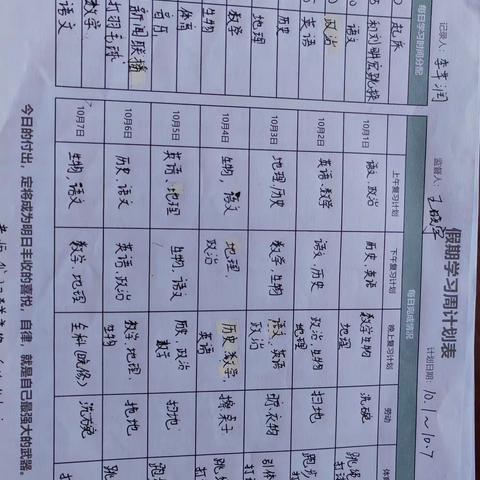 假期学习周计划表
计划日期: 10.1～10.7
记录人: 李
监督人: 王
每日学习时间分配
每日完成情况
上午复习计划 下午复习计划 晚上复习计划 劳动
起床
语文
政治
英语
历史
地理
数学
生物
体育
音乐
新闻联播
打羽毛球
数学
语文
10月1日 语文、政治 历史、英语 数学、生物 地理 洗碗
10月2日 英语、数学 语文、历史 政治、生物 地理 扫地 跑步
10月3日 地理、历史 数学、生物 语文、英语 政治 晾衣物
10月4日 生物、语文 地理、政治 历史、数学、英语 擦桌子
10月5日 英语、地理 生物、语文 历史、政治 数学 扫地
10月6日 历史、语文 英语、政治 数学、地理、生物 拖地
10月7日 生物、语文 数学、地理 全科(晚修) 洗碗
今日的付出，定将成为明日丰收的喜悦，自律，就是自己最强大的武器。